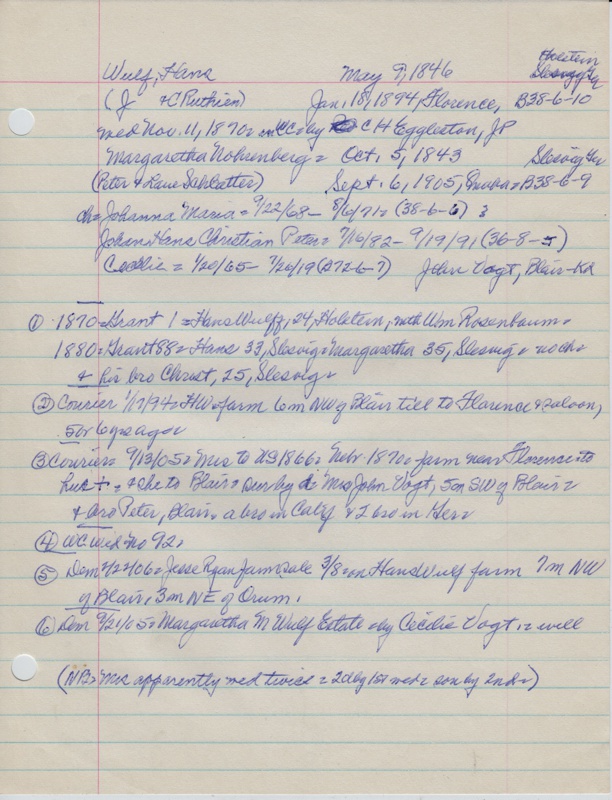 Wulf, Hans May 9, 1846 Holstein
(J + C Ruthien) Jan. 18, 1894, Florence, B38-6-10
med Nov. 11, 1870 = WC = by C H Eggleston, JP
Margaretha Nohrenberg = Oct. 5, 1843 Slesvig Ger
(Peter & Lane Sahlatter) Sept. 6, 1905, = B38-6-9
ch = Johanna Maria = 9/22/68 - 8/6/71 = (38-6-6)
Johan Hans Christian Peter = 7/16/82 - 9/19/91 (36-8-5)
Cecilia = 1/20/65 - 7/26/19 (272-6-7) John Vogt, Blair - Kd
① 1870 = Grant 1 = Hans Wulff, 24, Holstein, with Wm Rosenbaum =
1880 = Grant 88 = Hans 33, Slesvig = Margaretha 35, Slesvig = no ch =
+ his bro Christ, 25, Slesvig =
② Courier 1/17/94 = HW = farm 6 m NW of Blair till to Florence + saloon,
5 or 6 yrs ago =
③ Courier = 9/13/05 = Mrs to US 1866 = Nebr. 1870 = farm near Florence = to
hus + = + she to Blair = sur by Mrs John Vogt, 5 m SW of Blair =
+ bro Peter, Blair = a bro in Calif + 2 bro in Ger =
④ WC Wed no 92 =
⑤ Dem 2/22/06 = Jesse Ryan farm sale 3/8 = on Hans Wulf farm 7 m NW
of Blair, 3 m NE of Orum.
⑥ Dem 9/21/05 = Margaretha M Wulf Estate = by Cecilie Vogt = will
(NB = Mrs apparently med twice = 2 d by 1st med = son by 2nd =)